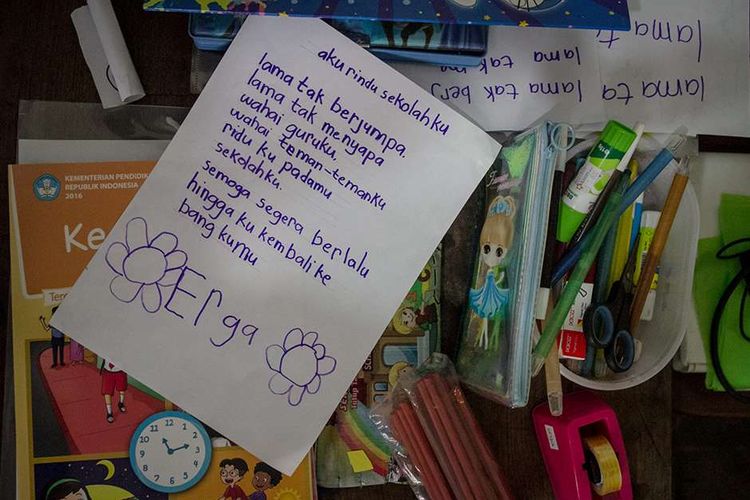 aku rindu sekolahku
lama tak berjumpa.
lama tak menyapa
wahai guruku,
wahai teman-temanku
ridu ku padamu
sekolahku.
semoga segera berlalu
hingga ku kembali ke
bang kumu
Erga
KEMENTERIAN PENDIDIK
REPUBLIK INDONESIA
2016
Ke
Ter
lama ta
lama tak
lama tak berj
lama ta